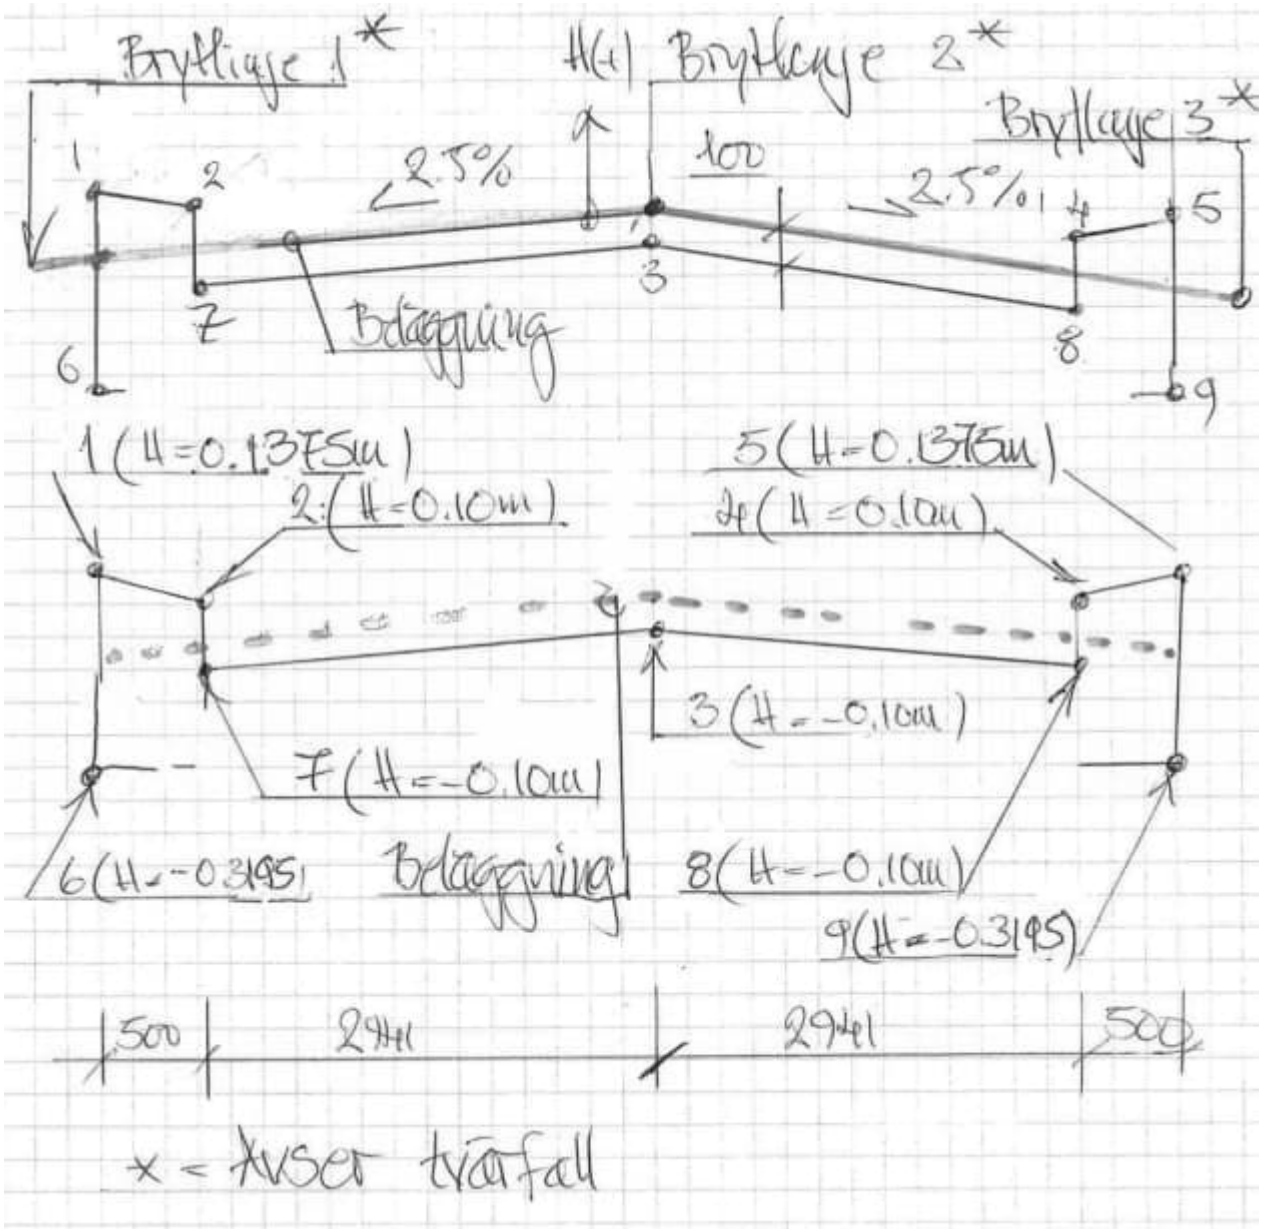 Brytlinje 1*
H(+) Brytlinje 2*
Brytlinje 3*
1
2
2.5%
100
2.5%
4
5
3
7
Beläggning
8
6
9
1 (H=0.1375m)
5 (H=0.1375m)
2 (H=0.10m)
4 (H=0.10m)
3 (H=-0.10m)
7 (H=-0.10m)
6 (H=-0.3195)
Beläggning
8 (H=-0.10m)
9 (H=-0.3195)
500
2941
2941
500
* = Avser tvärfall